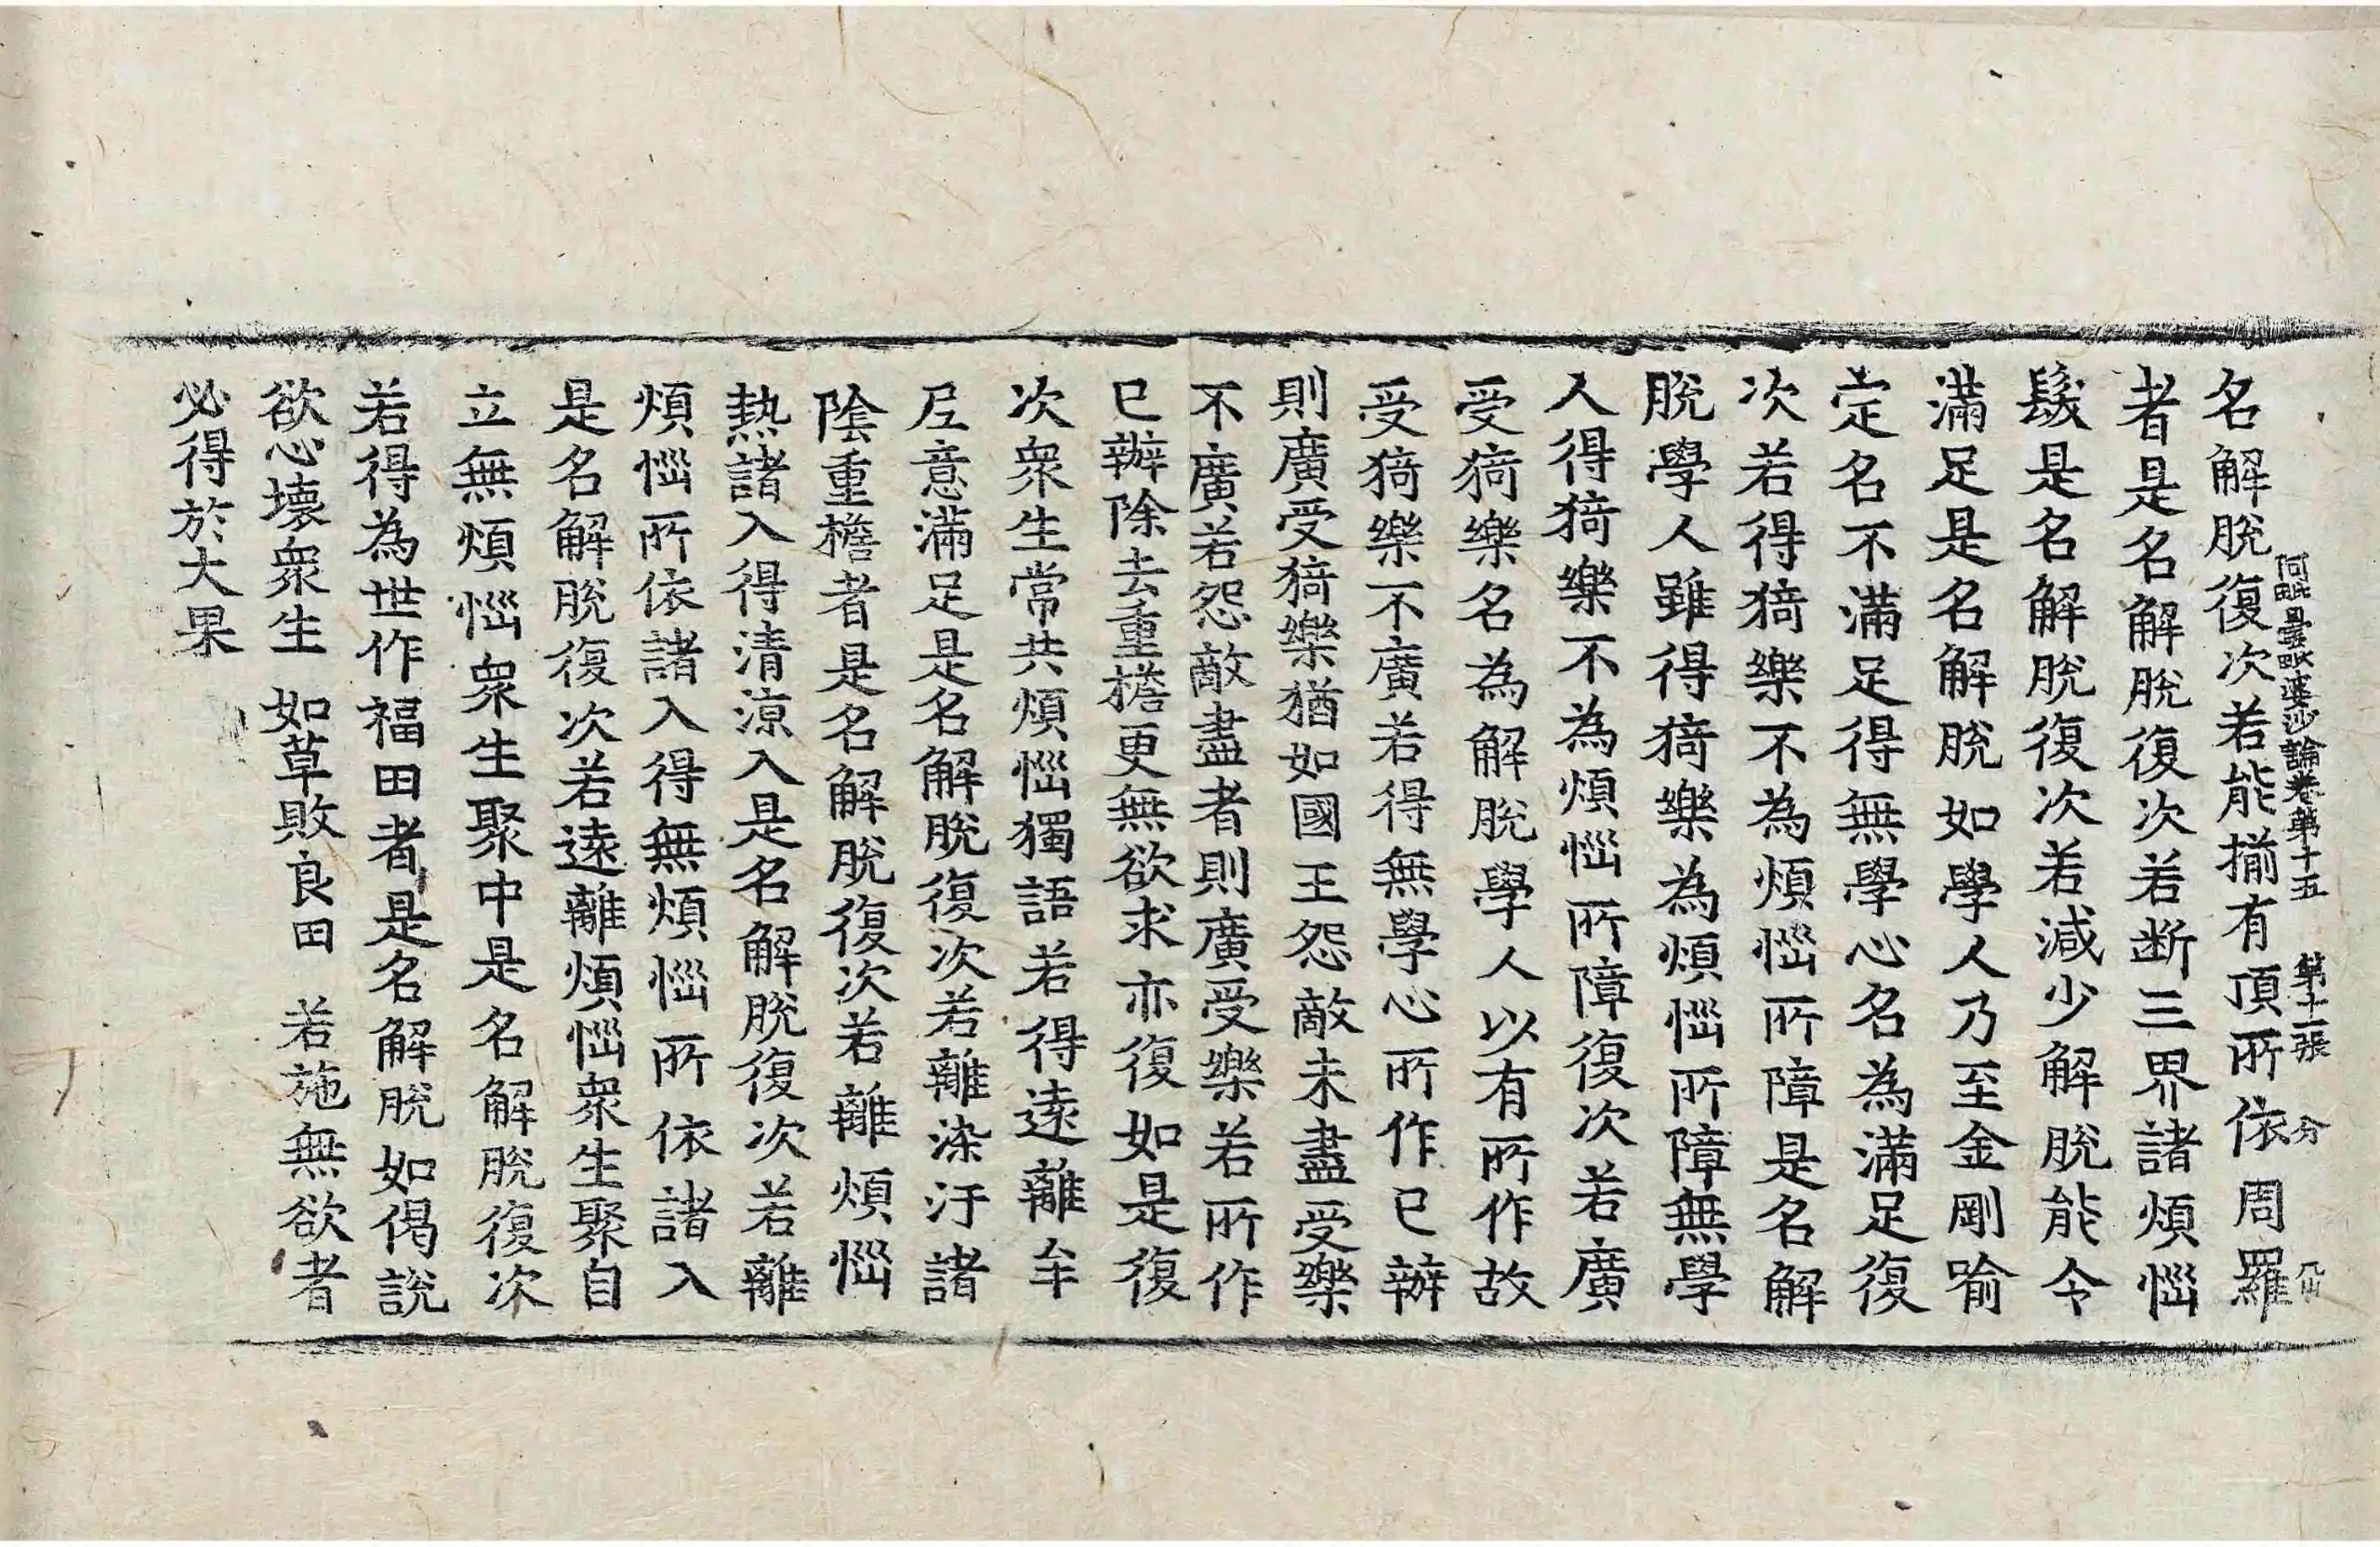 阿毗曇毗婆沙論卷第十五　第十二張　分
名解脫復次若能揃有頂所依周羅
者是名解脫復次若斷三界諸煩惱
鬚是名解脫復次若減少解脫能令
滿足是名解脫如學人乃至金剛喻
定名不滿足得無學心名為滿足復
次若得猗樂不為煩惱所障是名解
脫學人雖得猗樂為煩惱所障無學
人得猗樂不為煩惱所障復次若廣
受猗樂名為解脫學人以有所作故
受猗樂不廣若得無學心所作已辦
則廣受猗樂猶如國王怨敵未盡受樂
不廣若怨敵盡者則廣受樂若所作
已辦除去重檐更無欲求亦復如是復
次眾生常共煩惱獨語若得遠離牟
尼意滿足是名解脫復次若離染汙諸
陰重檐者是名解脫復次若離煩惱
熱諸入得清涼入是名解脫復次若離
煩惱所依諸入得無煩惱所依諸入
是名解脫復次若遠離煩惱眾生聚自
立無煩惱眾生聚中是名解脫復次
若得為世作福田者是名解脫如偈說
欲心壞眾生　如草敗良田　若施無欲者
必得於大果